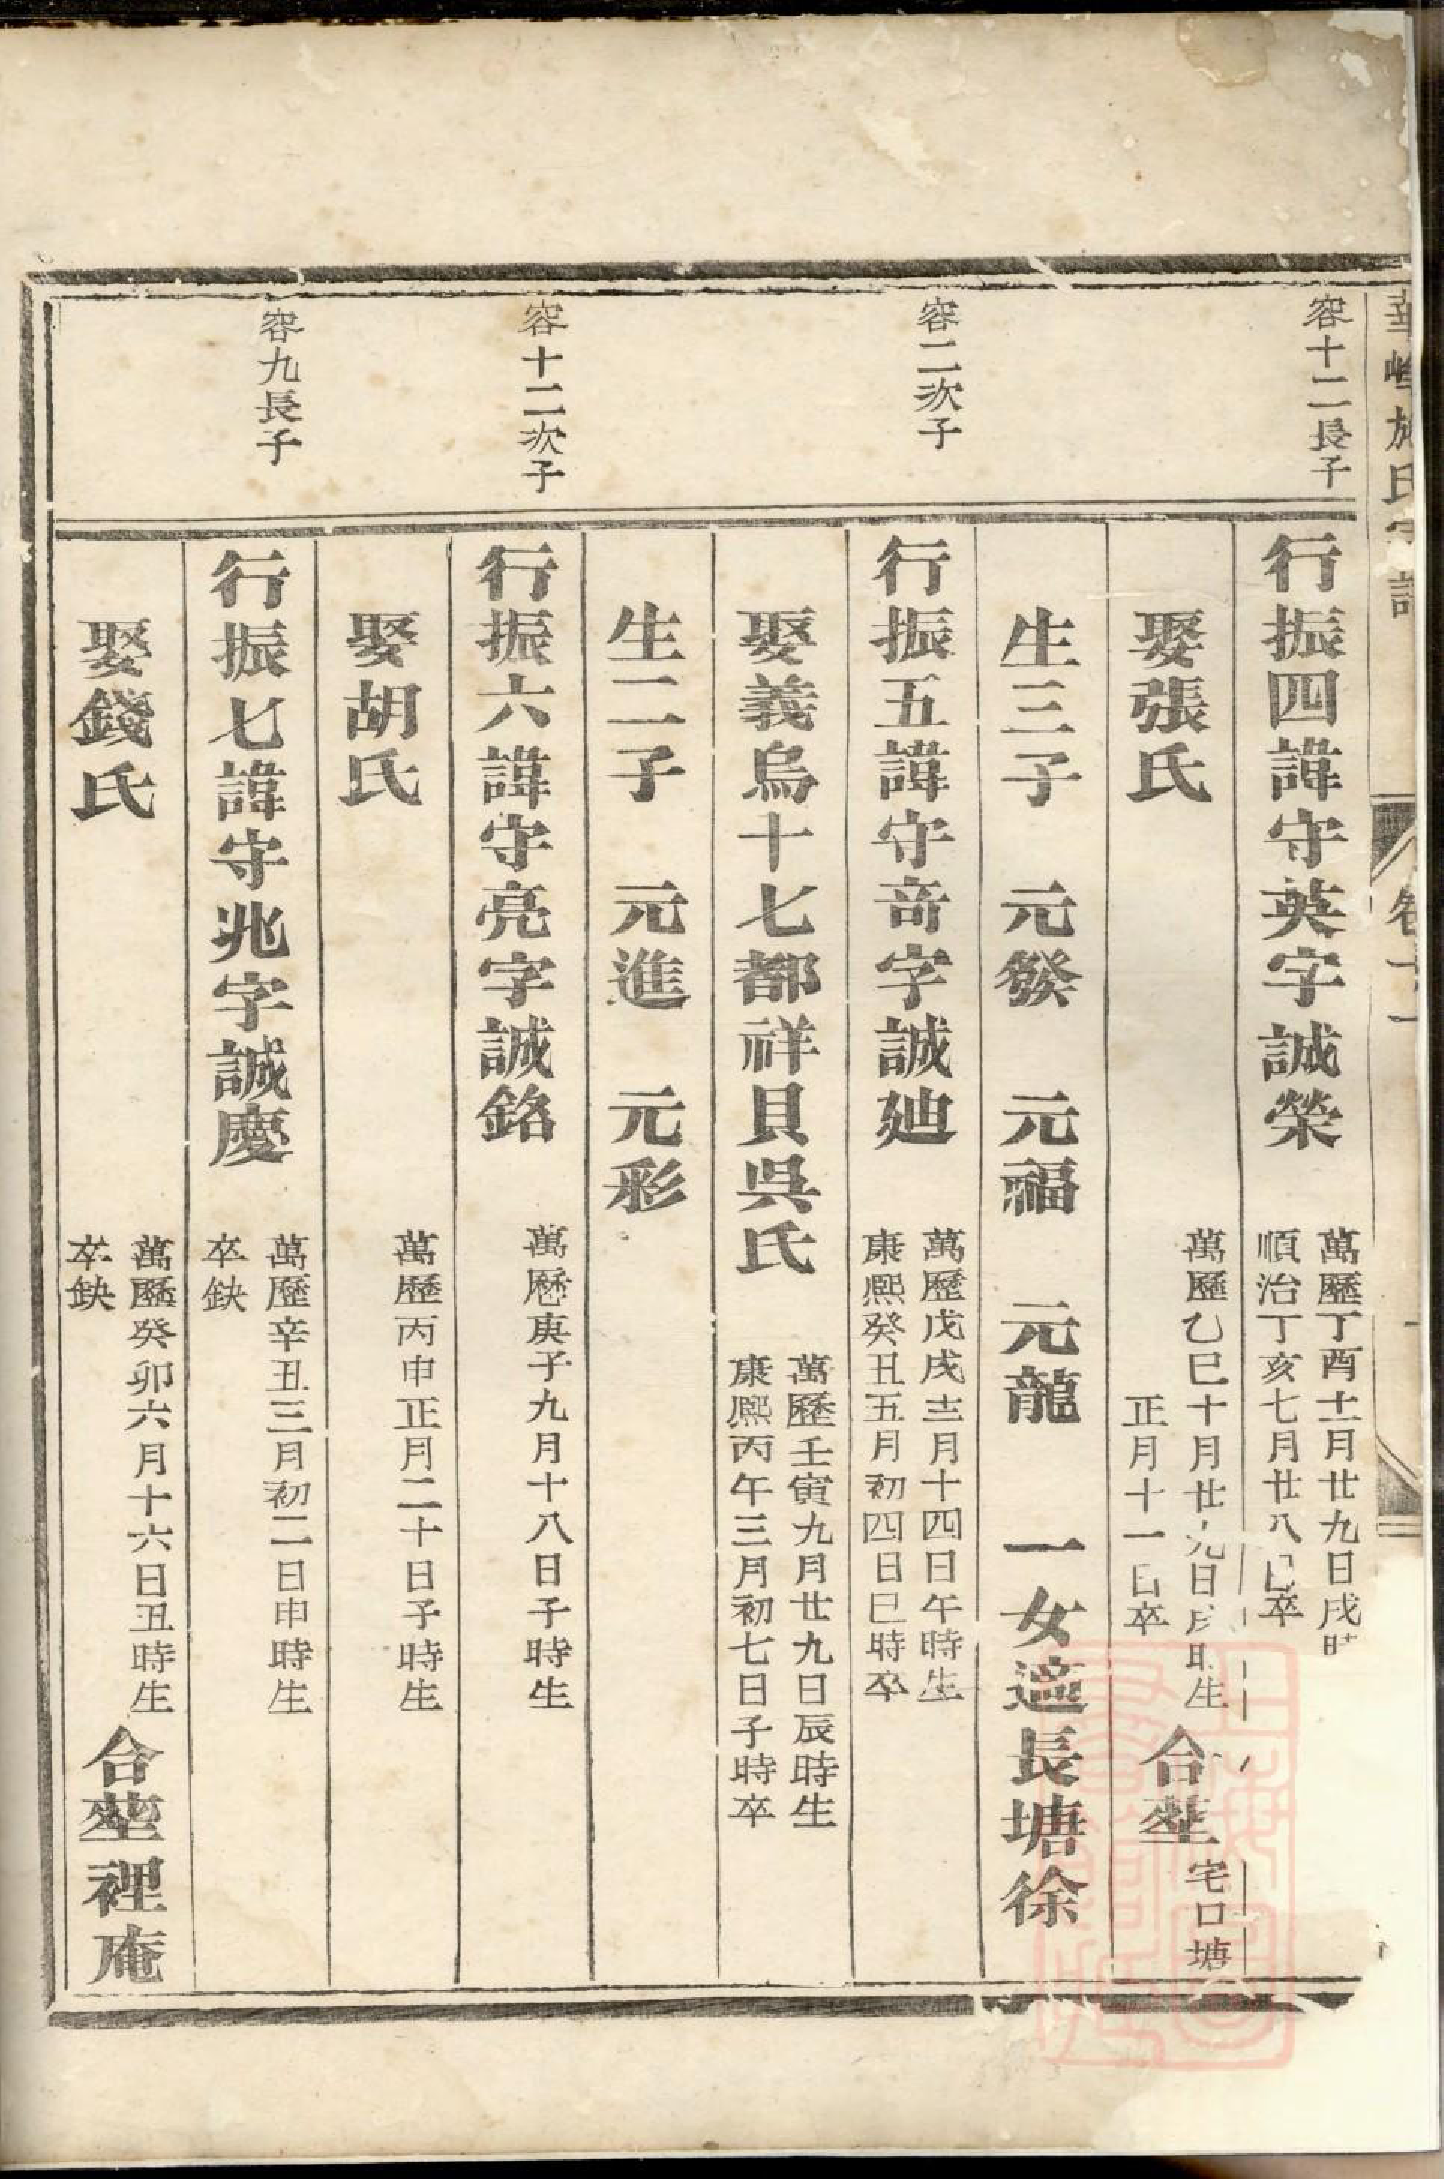 施氏宗譜
容十二長子
行振四諱守英字誠榮
萬歷丁酉十一月廿九日戌時
順治丁亥七月廿八日卒
娶張氏
萬歷乙巳十月廿九日戌時生
正月十一日卒
合塟
宅口塘
生三子 元發 元福 元龍 一女適長塘徐
容二次子
行振五諱守奇字誠廸
萬歷戊戌十二月十四日午時生
康熙癸丑五月初四日巳時卒
娶義烏十七都祥貝吳氏
萬歷壬寅九月廿九日辰時生
康熙丙午三月初七日子時卒
生二子 元進 元彩
容十二次子
行振六諱守亮字誠銘
萬歷庚子九月十八日子時生
娶胡氏
萬歷丙申正月二十日子時生
容九長子
行振七諱守兆字誠慶
萬歷辛丑三月初二日申時生
卒缺
娶錢氏
萬歷癸卯六月十六日丑時生
卒缺
合塟裡庵